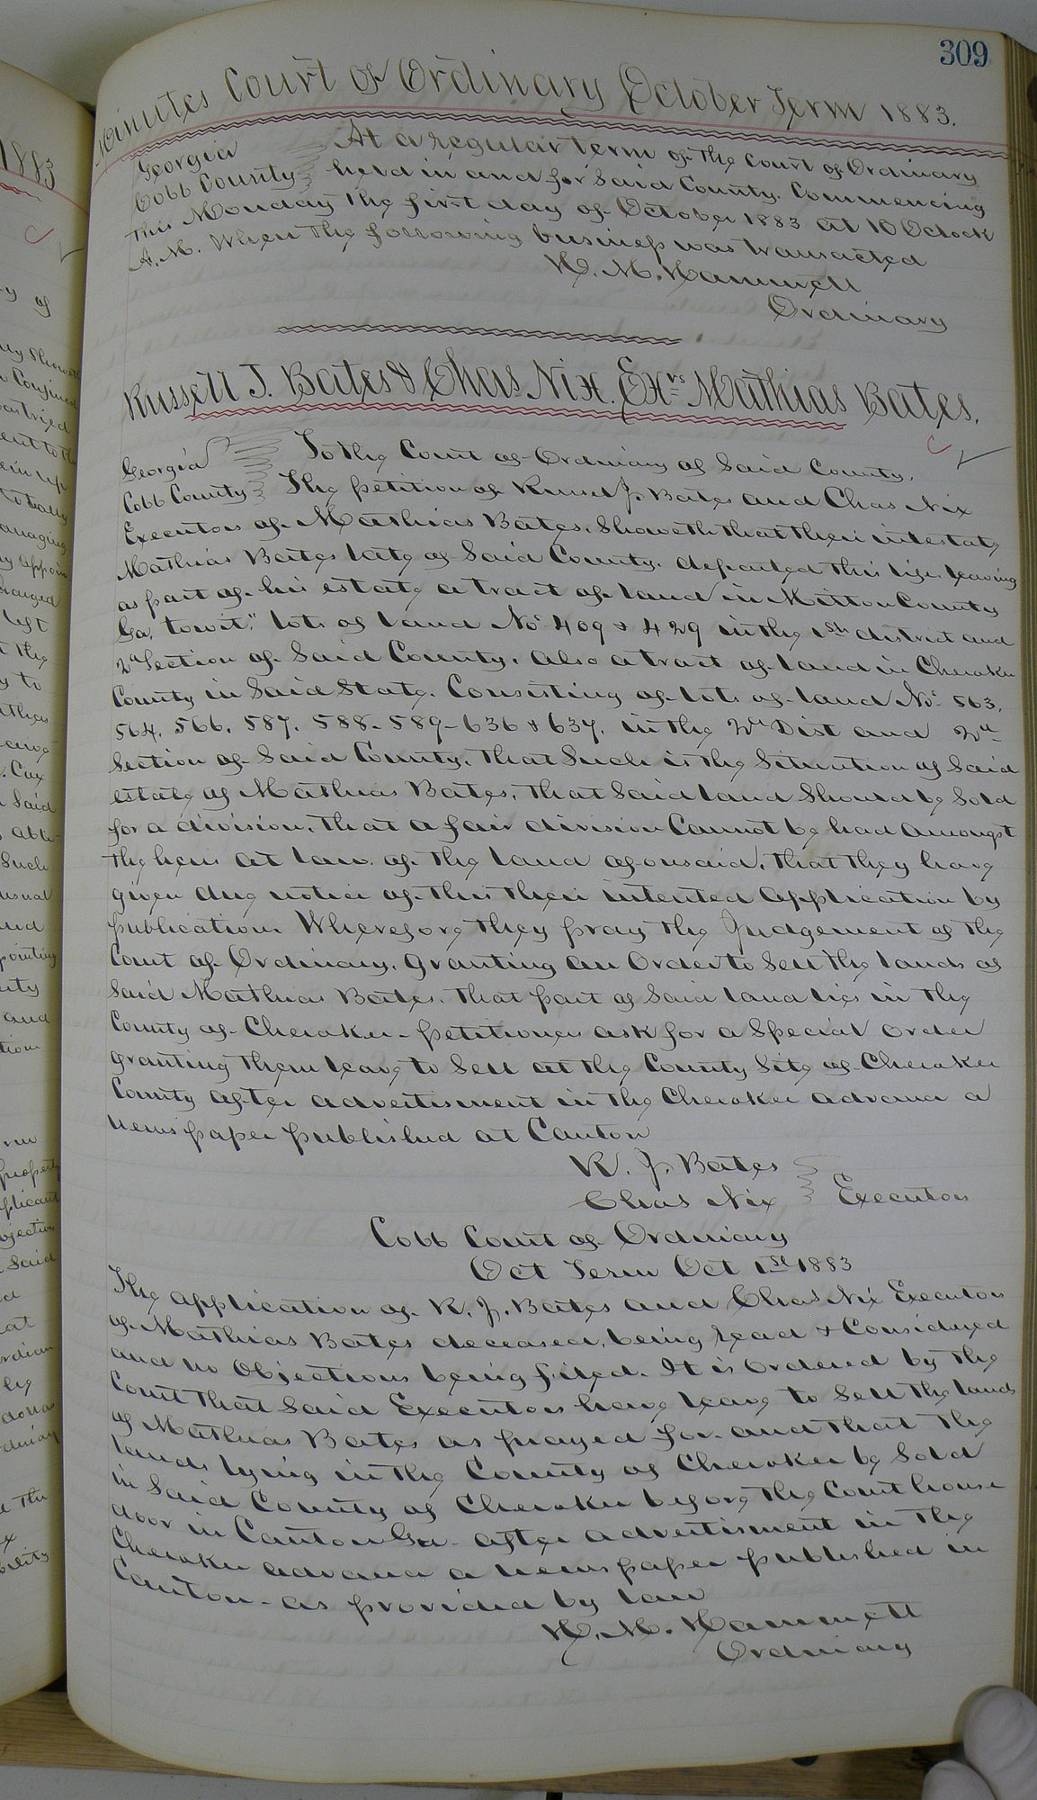 309
Minutes Court of Ordinary October Term 1883.
Georgia At a regular term of the Court of Ordinary
Cobb County held in and for Said County. Commencing
this Monday the first day of October 1883 at 10 Oclock
A.M. When the following business was transacted
H. M. Hammett
Ordinary
Russell J. Bates & Chas. Nix. Exrs Mathias Bates.
Georgia To the Court of Ordinary of Said County.
Cobb County The petition of Russel J. Bates and Chas Nix
Executors of Mathias Bates, Showeth that their intestate
Mathias Bates late of Said County. departed this life leaving
as part of his estate a tract of land in Milton County
Ga, "towit." lots of land Nos 409 & 429 in the 1st district and
2d Section of Said County. also a tract of land in Cherokee
County in Said State. Consisting of lots of land Nos 563.
564. 566. 587. 588- 589- 636 & 637. in the 2d Dist and 2d
Section of Said County. that Such is the Situation of Said
estate of Mathias Bates, that Said land Should be Sold
for a division, that a fair division Cannot be had amongst
the heirs at law. of the land aforesaid, that they have
given due notice of this their intented application by
publication Wherefore they pray the Judgement of the
Court of Ordinary. granting an Order to Sell the lands of
Said Mathias Bates. that part of Said land lies in the
County of Cherokee- petitioners ask for a Special order
granting them leave to Sell at the County Site of Cherokee
County after advertisment in the Cherokee advance a
news paper published at Canton
R. J. Bates
Chas Nix Executors
Cobb Court of Ordinary
Oct Term Oct 1st 1883
The application of R. J. Bates and Chas Nix Executors
of Mathias Bates deceased, being read & Considered
and no Objections being filed. It is Ordered by the
Court that Said Executors have leave to Sell the lands
of Mathias Bates as prayed for. and that the
lands lying in the County of Cherokee be Sold
in Said County of Cherokee before the Court house
door in Canton Ga- after advertisment in the
Cherokee advance a news paper published in
Canton- as provided by law
H. M. Hammett
Ordinary